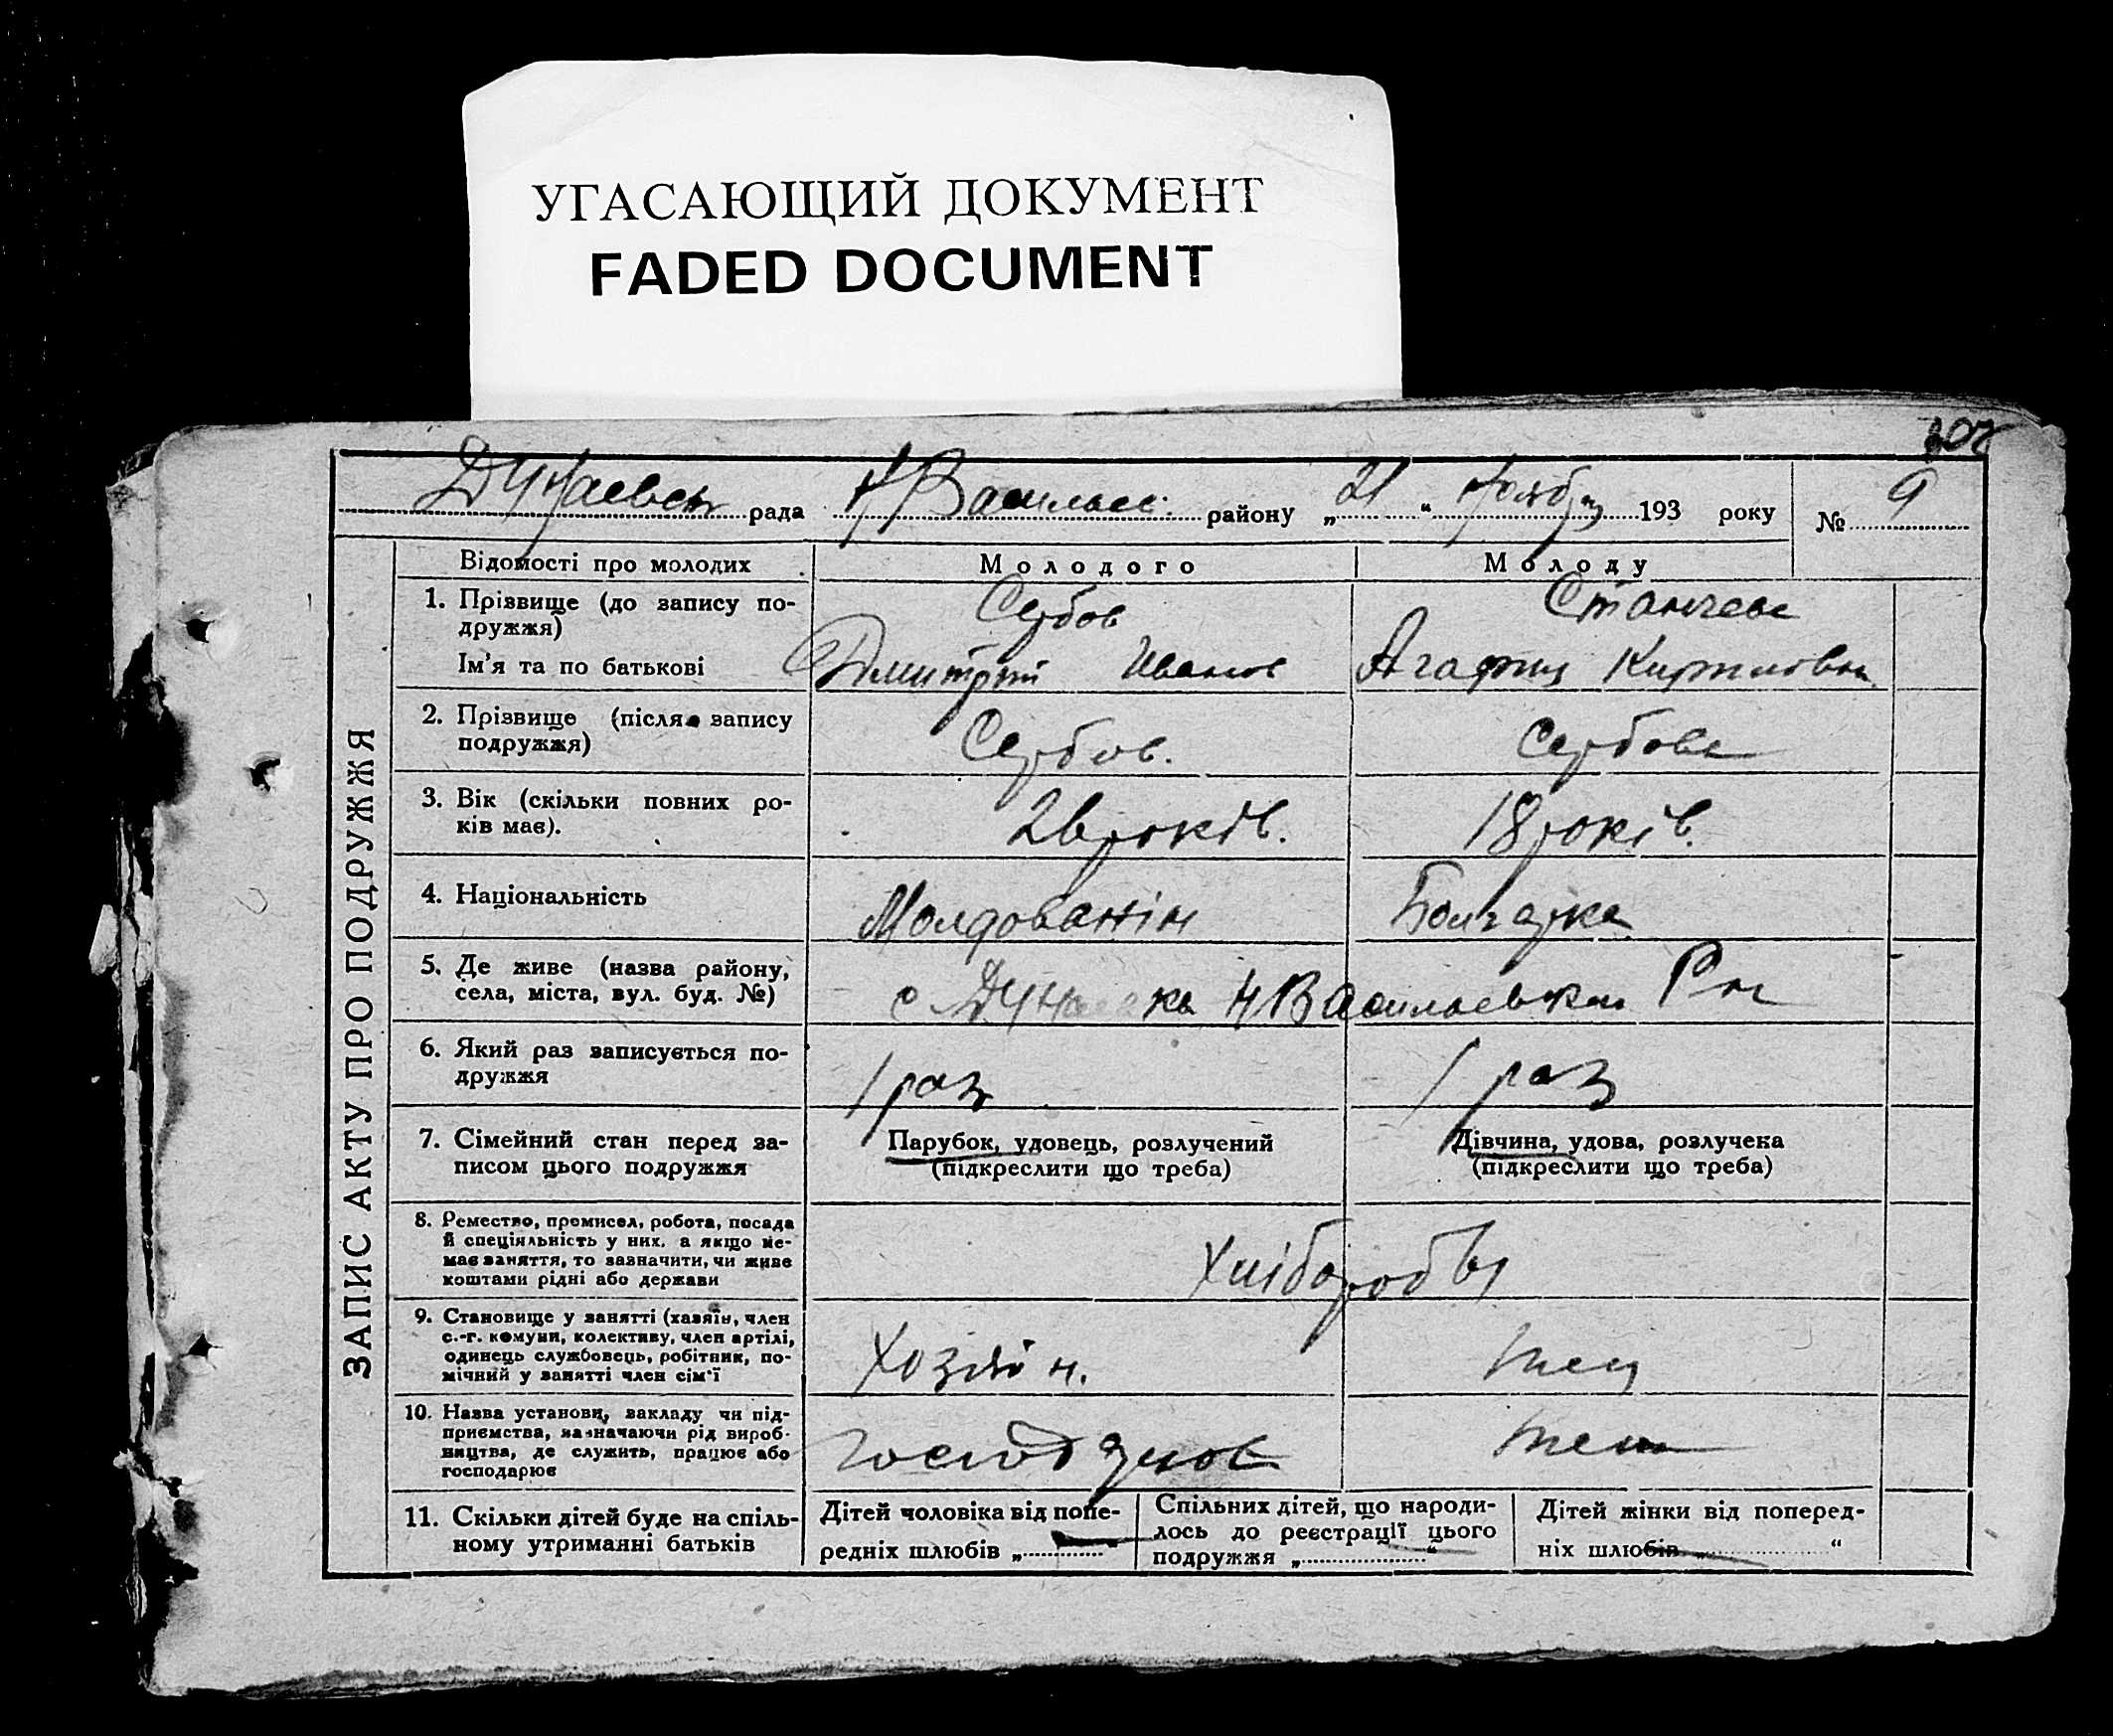 УГАСАЮЩИЙ ДОКУМЕНТ
FADED DOCUMENT
Дунаевск рада Н Васильев. району „21“ Ноября 193 року № 9
ЗАПИС АКТУ ПРО ПОДРУЖЖЯ
Відомості про молодих Молодого Молоду
1. Прізвище (до запису по-
дружжя)
Сербов Станчева
Ім'я та по батькові Дмитрий Иванов Агафия Кириловн.
2. Прізвище (після запису
подружжя)
Сербов. Сербова
3. Вік (скільки повних ро-
ків має).
26 років. 18 років.
4. Національність Молдованін Болгарка
5. Де живе (назва району,
села, міста, вул. буд. №)
с Дунаевка НВасильевкого Рн
6. Який раз записується по-
дружжя
1 раз 1 раз
7. Сімейний стан перед за-
писом цього подружжя
Парубок, удовець, розлучений
(підкреслити що треба)
Дівчина, удова, розлучена
(підкреслити що треба)
8. Ремество, промисел, робота, посада
й спеціяльність у них, а якщо не-
має заняття, то зазначити, чи живе
коштами рідні або держави
Хліборобы
9. Становище у занятті (хазяїн, член
с.-г. комуни, колективу, член артілі,
одинець службовець, робітник, по-
мічний у занятті член сім'ї
Хозяїн.
10. Назва установи, закладу чи під-
приємства, зазначаючи рід вироб-
ництва, де служить, працює або
господарює
11. Скільки дітей буде на спіль-
ному утриманні батьків
Дітей чоловіка від попе-
редніх шлюбів „ “
Спільних дітей, що народи-
лось до реєстрації цього
подружжя „ “
Дітей жінки від поперед-
ніх шлюбів „ “